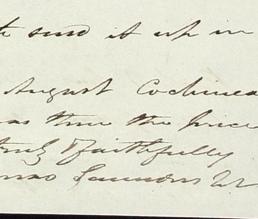 send it up in
August Cochinea
was then the price
truly & faithfully
mas Saunders